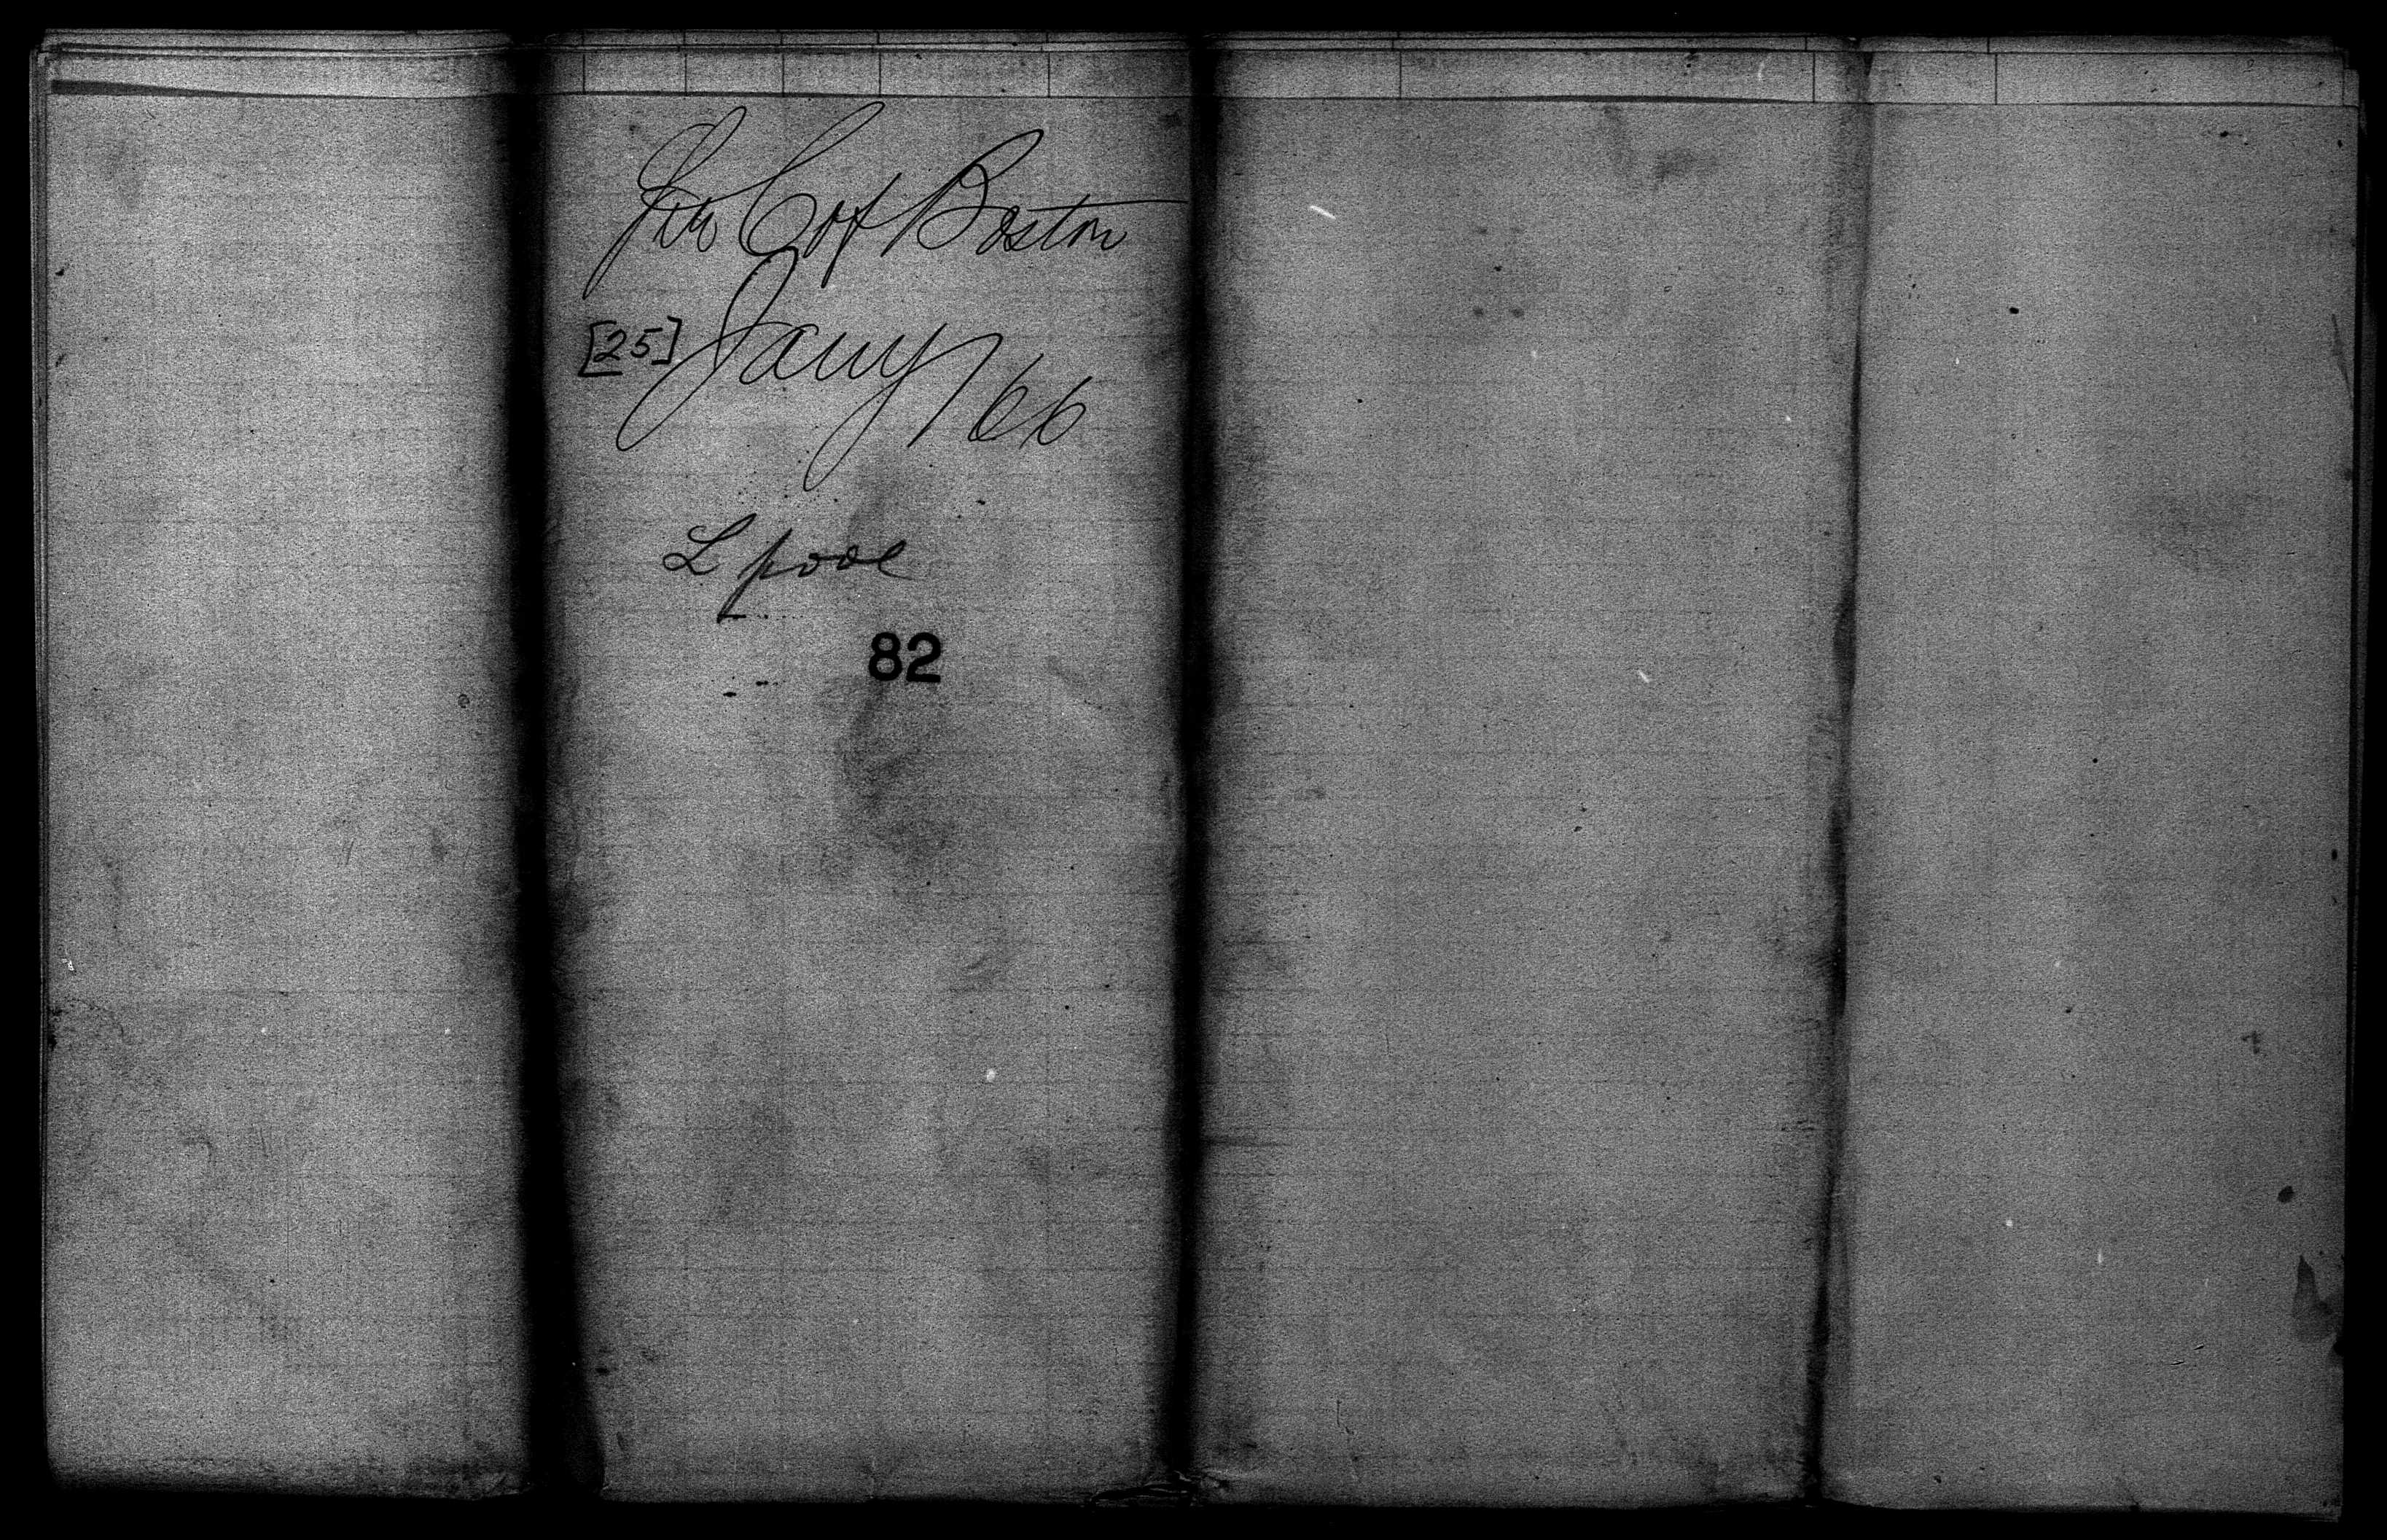 Str C of Boston
[25] Jany /66
L pool
82